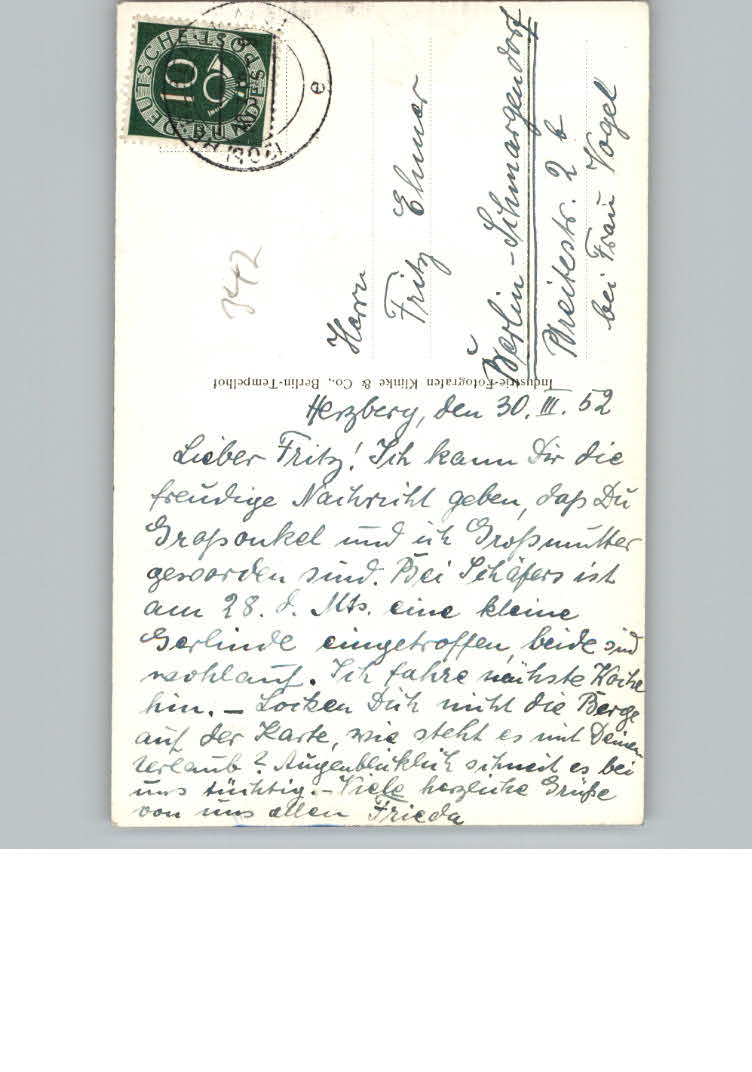 Herzberg, den 30. III. 52
Lieber Fritz! Ich kann Dir die
freudige Nachricht geben, daß Du
Großonkel und ich Großmutter
geworden sind. Bei Schäfers ist
am 28. d. Mts. eine kleine
Gerlinde eingetroffen, beide sind
wohlauf. Ich fahre nächste Woche
hin. – Locken Dich nicht die Berge
auf der Karte, wie steht es mit Deinem
Urlaub? Augenblicklich schneit es bei
uns tüchtig. – Viele herzliche Grüße
von uns allen Frieda
Herrn
Fritz Ehmer
Berlin-Schmargendorf
Breitestr. 2 b
bei Frau Vogel
Industrie-Fotografen Klinke & Co., Berlin-Tempelhof
DEUTSCHE BUNDESPOST
10
e